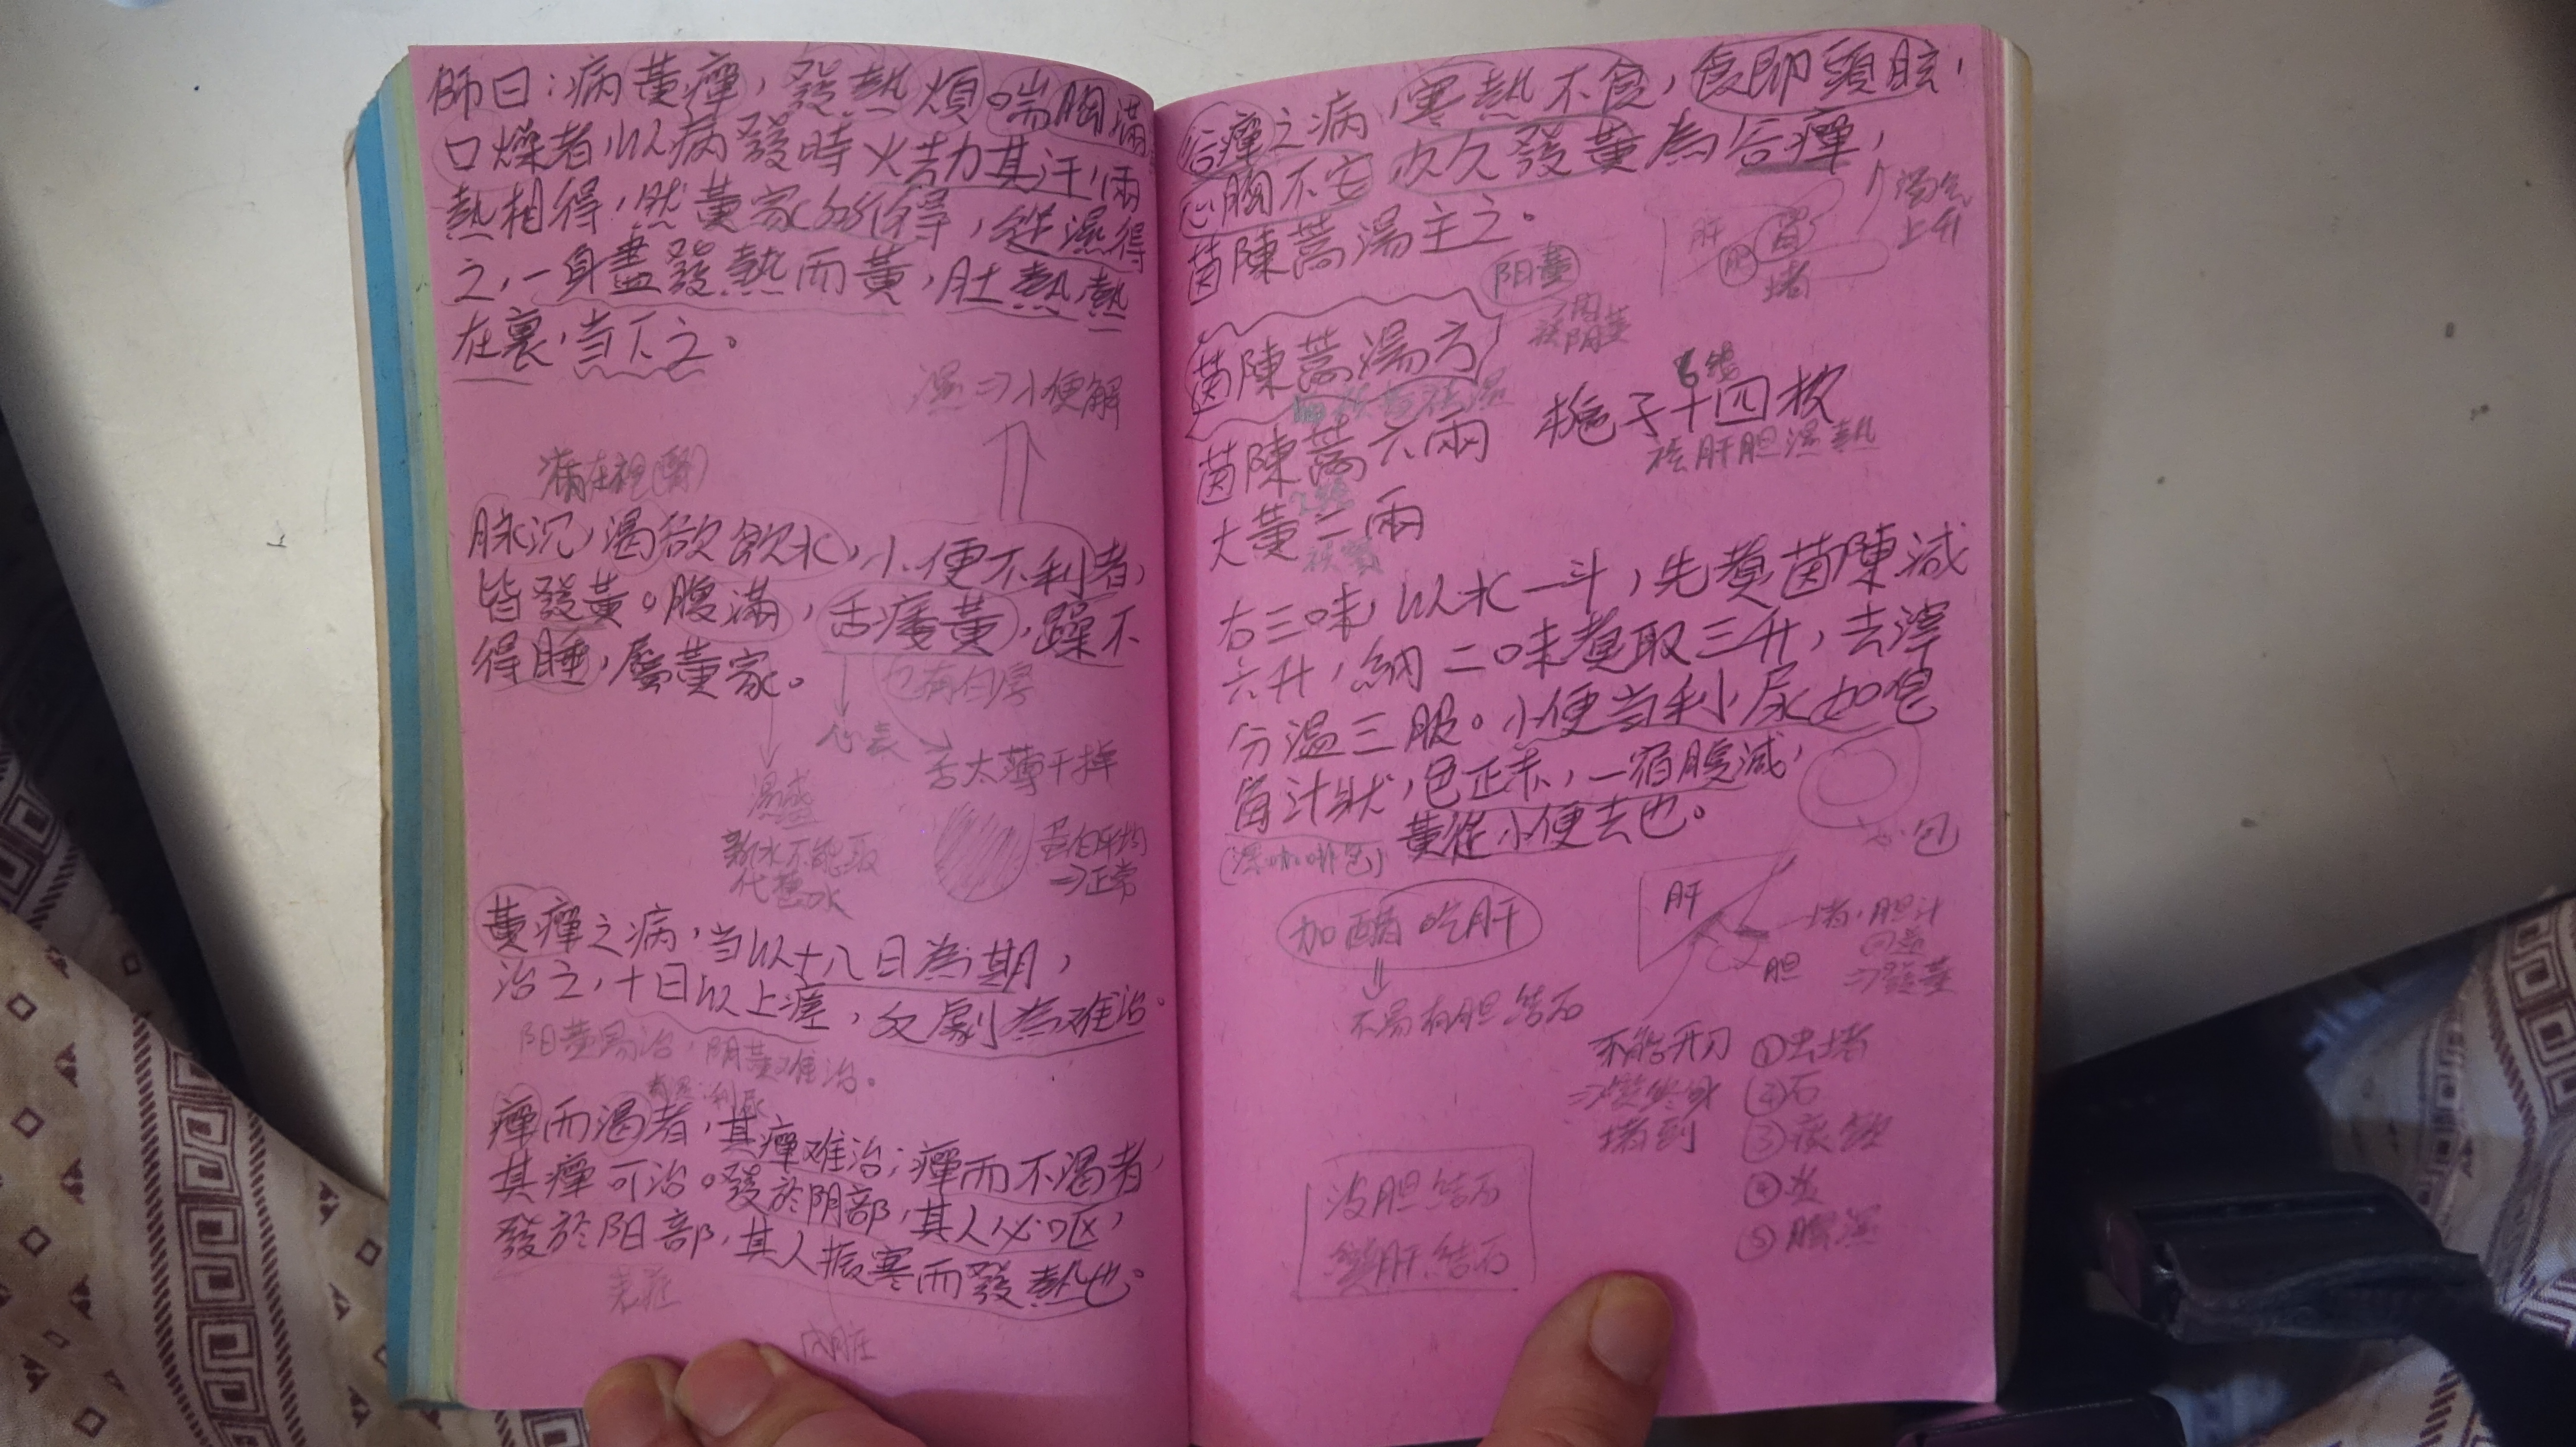 師曰：病黃癉，發熱煩喘胸滿
口燥者，以病發時火劫其汗，兩
熱相得，然黃家所得，從濕得
之，一身盡發熱而黃，肚熱，熱
在裏，当下之。
濕⇒小便解
脉沉，渴欲飲水，小便不利者，
皆發黃。腹滿，舌痿黃，躁不
得睡，屬黃家。
心衰
舌太薄干掉
濕盛
新水不能取
代舊水
蛋白平均
⇒正常
黃癉之病，当以十八日為期，
治之，十日以上瘥，反劇為难治。
阳黃易治，阴黃难治。
癉而渴者，其癉难治；癉而不渴者，
其癉可治。發於阴部，其人必呕，
發於阳部，其人振寒而發熱也。
谷癉之病，寒熱不食，食即頭眩，
心胸不安，久久發黃為谷癉，
茵陳蒿湯主之。
濁气
上升
肝
胆
胃
堵
阳黃
茵陳蒿湯方
茵陳蒿六兩 梔子十四枚
祛肝胆濕熱
大黃二兩
右三味，以水一斗，先煮茵陳減
六升，納二味煮取三升，去滓
分溫三服。小便当利，尿如皂
角汁狀，色正赤，一宿腹減，
黃從小便去也。
(深咖啡色)
心包
加醋吃肝
⇓
不易有胆结石
肝
胆
堵，胆汁
回逆
⇒發黃
不能开刀
堵到
①虫堵
②石
③痰飲
⑤腸濕
没胆结石
變肝结石